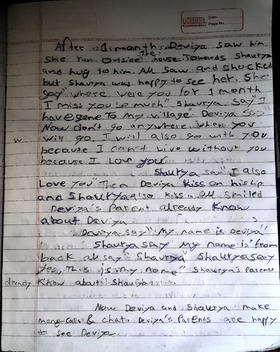 After 1 month, Deviya saw him
She run outside the house towards Shaurya
and hug to him. All saw and shucked
but Shaurya was happy to see her. She
say "where were you for 1 month
I miss you so much" Shaurya say "I
have gone To my village Deviya say
Now don't go anywhere. when you
will go, I will also go with you
because I can't live without you
because I Love you
Shaurya say "I also
Love you" Then Deviya kiss on his lip
and Shaurya also kiss all smiled
Deviya's Parent already know
about Deviya
Deviya say "My name is Deviya"
Shaurya say My name is from
back all say "Shaurya" Shaurya say
yes, This is my name" Shaurya's Parents
already know about Shaurya
Now Deviya and Shaurya make
many calls & chat. Deviya's Parents are happy
to see Deviya.